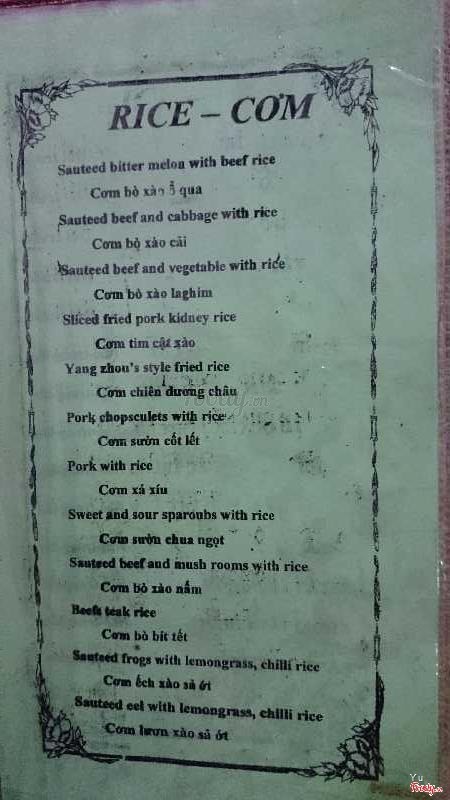 RICE – CƠM
Sauteed bitter melon with beef rice
Cơm bò xào ổ qua
Sauteed beef and cabbage with rice
Cơm bò xào cải
Sauteed beef and vegetable with rice
Cơm bò xào laghim
Sliced fried pork kidney rice
Cơm tim cật xào
Yang zhou's style fried rice
Cơm chiên dương châu
Pork chopsculets with rice
Cơm sườn cốt lết
Pork with rice
Cơm xá xíu
Sweet and sour sparoubs with rice
Cơm sườn chua ngọt
Sauteed beef and mush rooms with rice
Cơm bò xào nấm
Beefs teak rice
Cơm bò bít tết
Sauteed frogs with lemongrass, chilli rice
Cơm ếch xào sả ớt
Sauteed eel with lemongrass, chilli rice
Cơm lươn xào sả ớt
Yu
Foody.vn